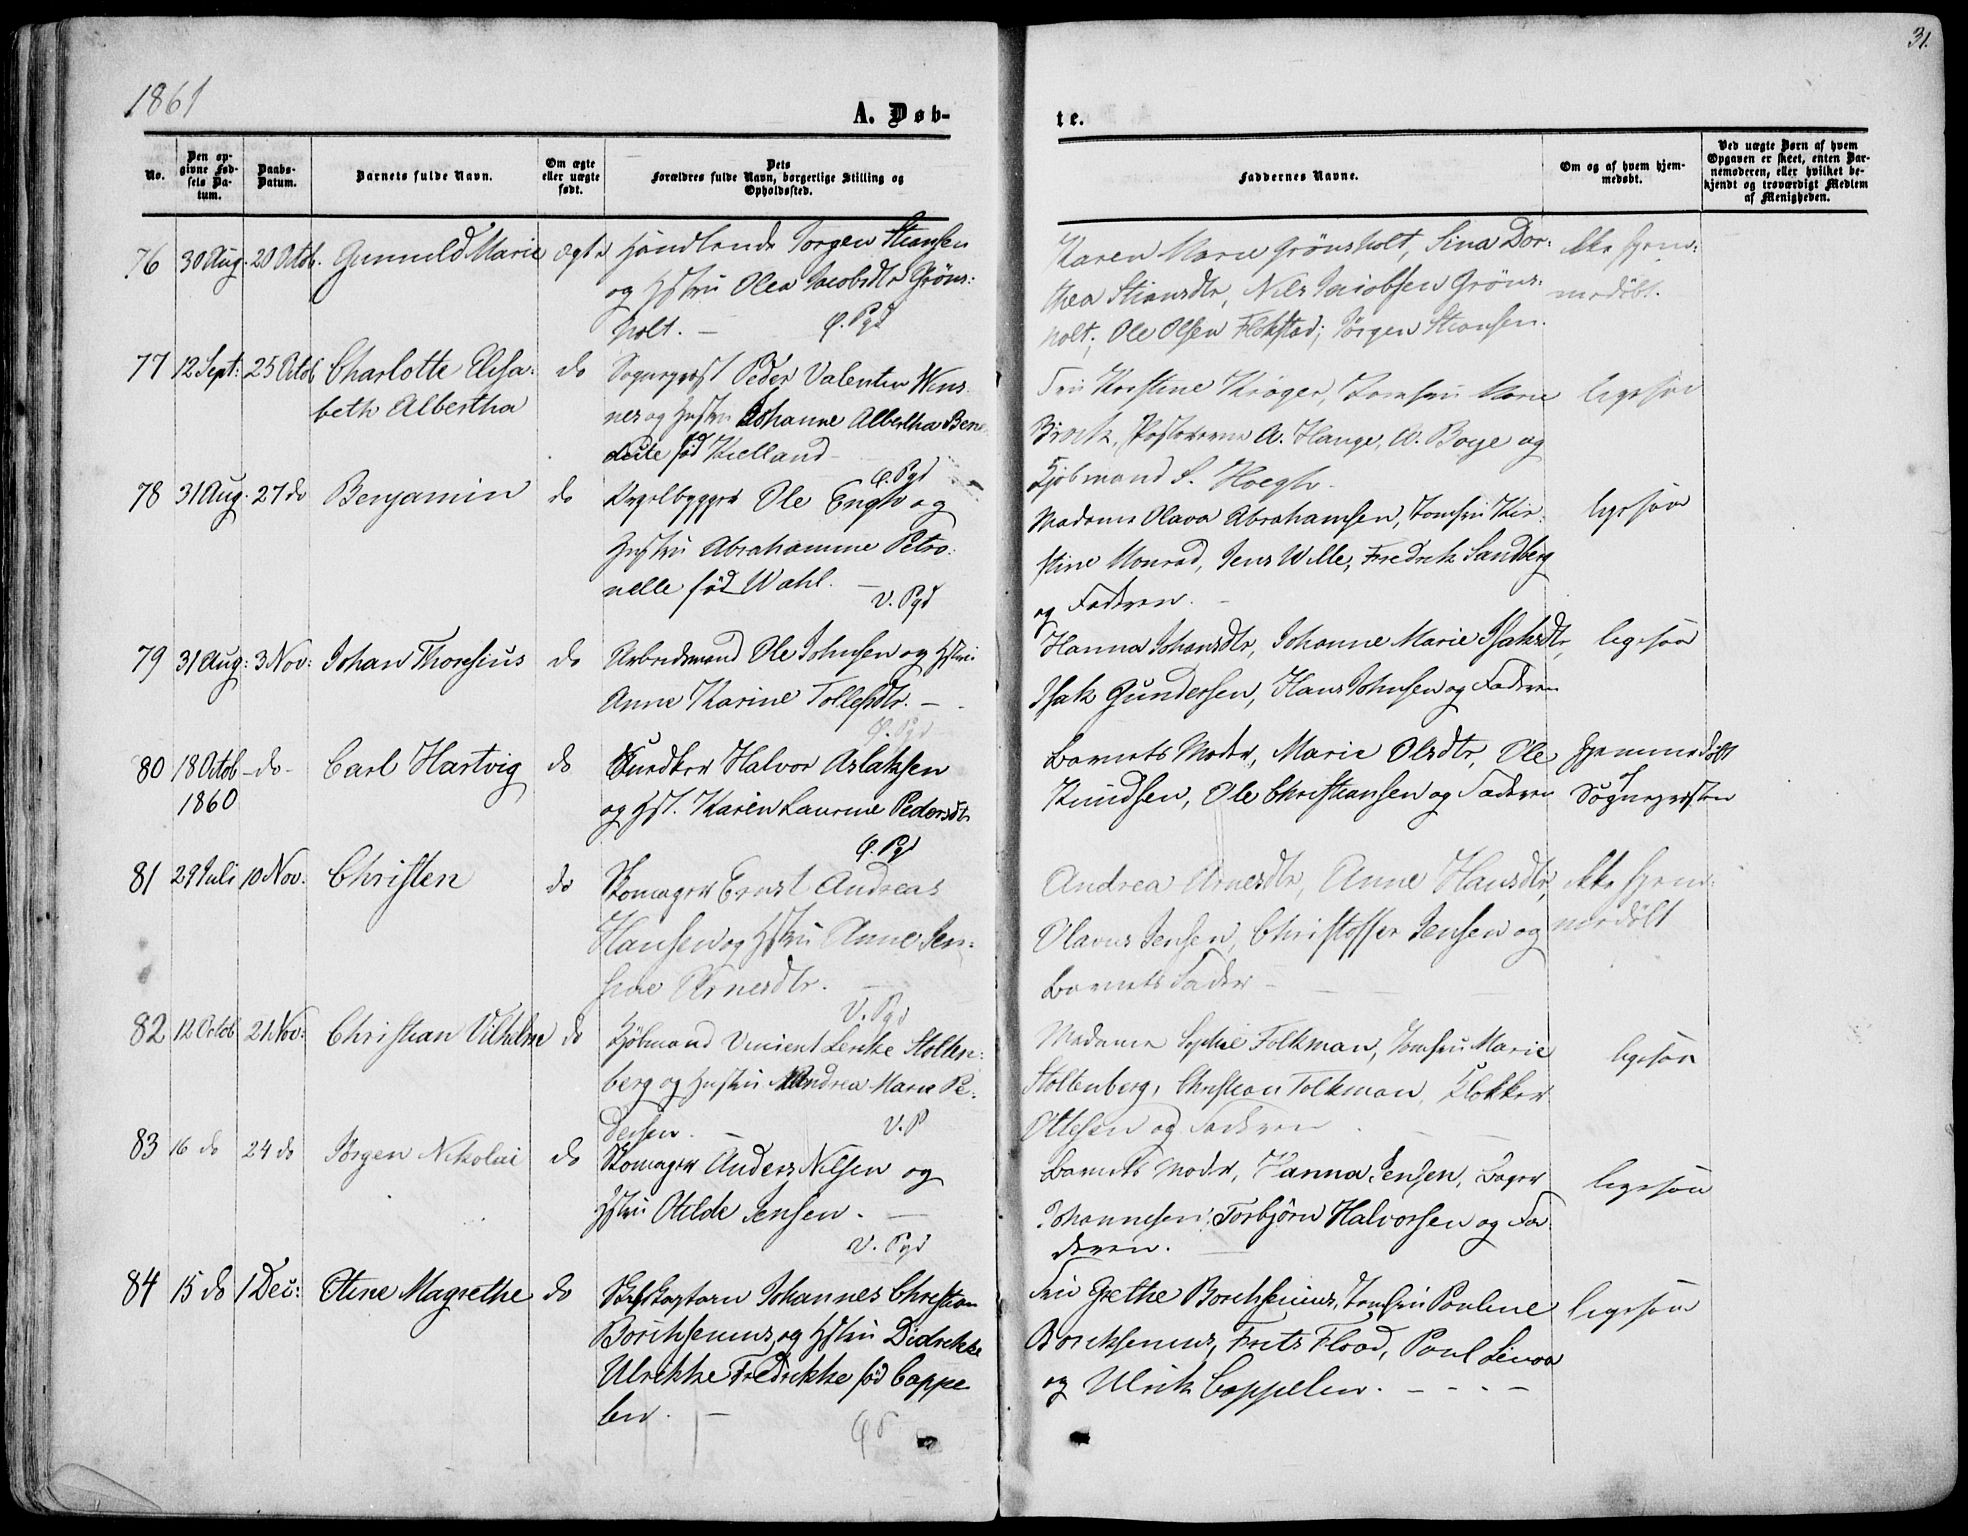 1861
31.
A. Døb-
te.
No.
Den op-
givne Fød-
sels Da-
tum.
Daabs-
Datum.
Barnets fulde Navn.
Om ægte
eller uægte
født.
Dets
Forældres fulde Navn, borgerlige Stilling og
Opholdssted.
Faddernes Navne.
Om og af hvem hjem-
medøbt.
Ved uægte Børn af hvem
Opgaven er skeet, enten Bar-
nemoderen, eller hvilket be-
kjendt og troværdigt Medlem
af Menigheden.
76 30 Aug. 20 Octob. Gunnuld Marie ægte Handlende Jørgen Stiansen
og Hstru Olea Jacobsdtr Gröns:
holt. –
Karen Marie Grönsholt, Sina Dor:
thea Stiansdtr, Nils Jacobsen Gröns:
holt; Ole Olsen Flekstad; Jörgen Stiansen.
ikke hjem:
medöbt.
77 12 Sept: 25 Octob Charlotte Elisa:
beth Albertha
do Sognepræst Peder Valentin Wens
nes og Hustru Johanne Albertha Bene
dicte fød Kielland
Fru Kirstine Krøger, Jomfru Marie
Brock, A. Hauge, A. Boye og
Kjöbmand S. Hoegh.
ligesaa
78 31 Aug. 27 do Benjamin do Orgelbygger Ole Engh og
Hustru Abrahamine Petro:
nelle fød Wahl.
V. Pgd
Madame Olava Abrahamsen, Jomfru Kir:
stine Monrad, Jens Wille, Fredrik Sandberg
og Faderen.
ligesaa
79 31 Aug: 3 Nov: Johan Thoresius do Arbeidsmand Ole Johnsen og Hstru
Anne Karine Tollefsdtr. –
Hanna Johansdtr, Johanne Marie Isaksdtr,
Isak Gundersen, Hans Johnsen og Faderen
ligesaa
80 18 Octob
1860
- do - Carl Hartvig do Halvor Aslaksen
og Hst. Karen Laurine Pedersdtr
Barnets Moder, Marie Olsdtr, Ole
Knudsen, Ole Christiansen og Faderen
hjemmedöbt
af
Sognepræsten
81 29 Juli 10 Nov. Christen do Skomager Ernst Andreas
Hansen og Hstru Anne Jen:
sine Arnesdtr.
V. Pgd
Andrea Arnesdtr, Anne Hansdtr,
Olavus Jensen, Christoffer Jensen og
Barnets Fader –
ikke hjem:
medöbt
82 12 Octob 21 Nov: Christian Vilhelm do Kjöbmand Vincent Lercke Stolten:
berg og Hustru Andrea Marie Pe:
dersen. –
V. P
Madame Sophie Folkman, Jomfru Marie
Stoltenberg, Christian Folkman, Klokker
Ottesen og Faderen
ligesaa
83 16 do 24 do Jörgen Nikolai do Skomager Anders Nilsen og
Hstru Otilde Jensen. –
V. Pgd
Barnets Moder, Hanna Jensen, Bager
Johannesen, Torbjörn Halvorsen og Fa
deren.
ligesaa
84 15 do 1 Dec: Otine Magrethe do Skibskaptain Johannes Christian
Borchsenius og Hstru Didrikke
Ulrikke Fredrikke fød Cappe
len. –
Fru Grethe Borchsenius, Jomfru Pauline
Borchsenius, Frits Flood, Paul Linaa
og Ulrik Cappelen.
ligesaa